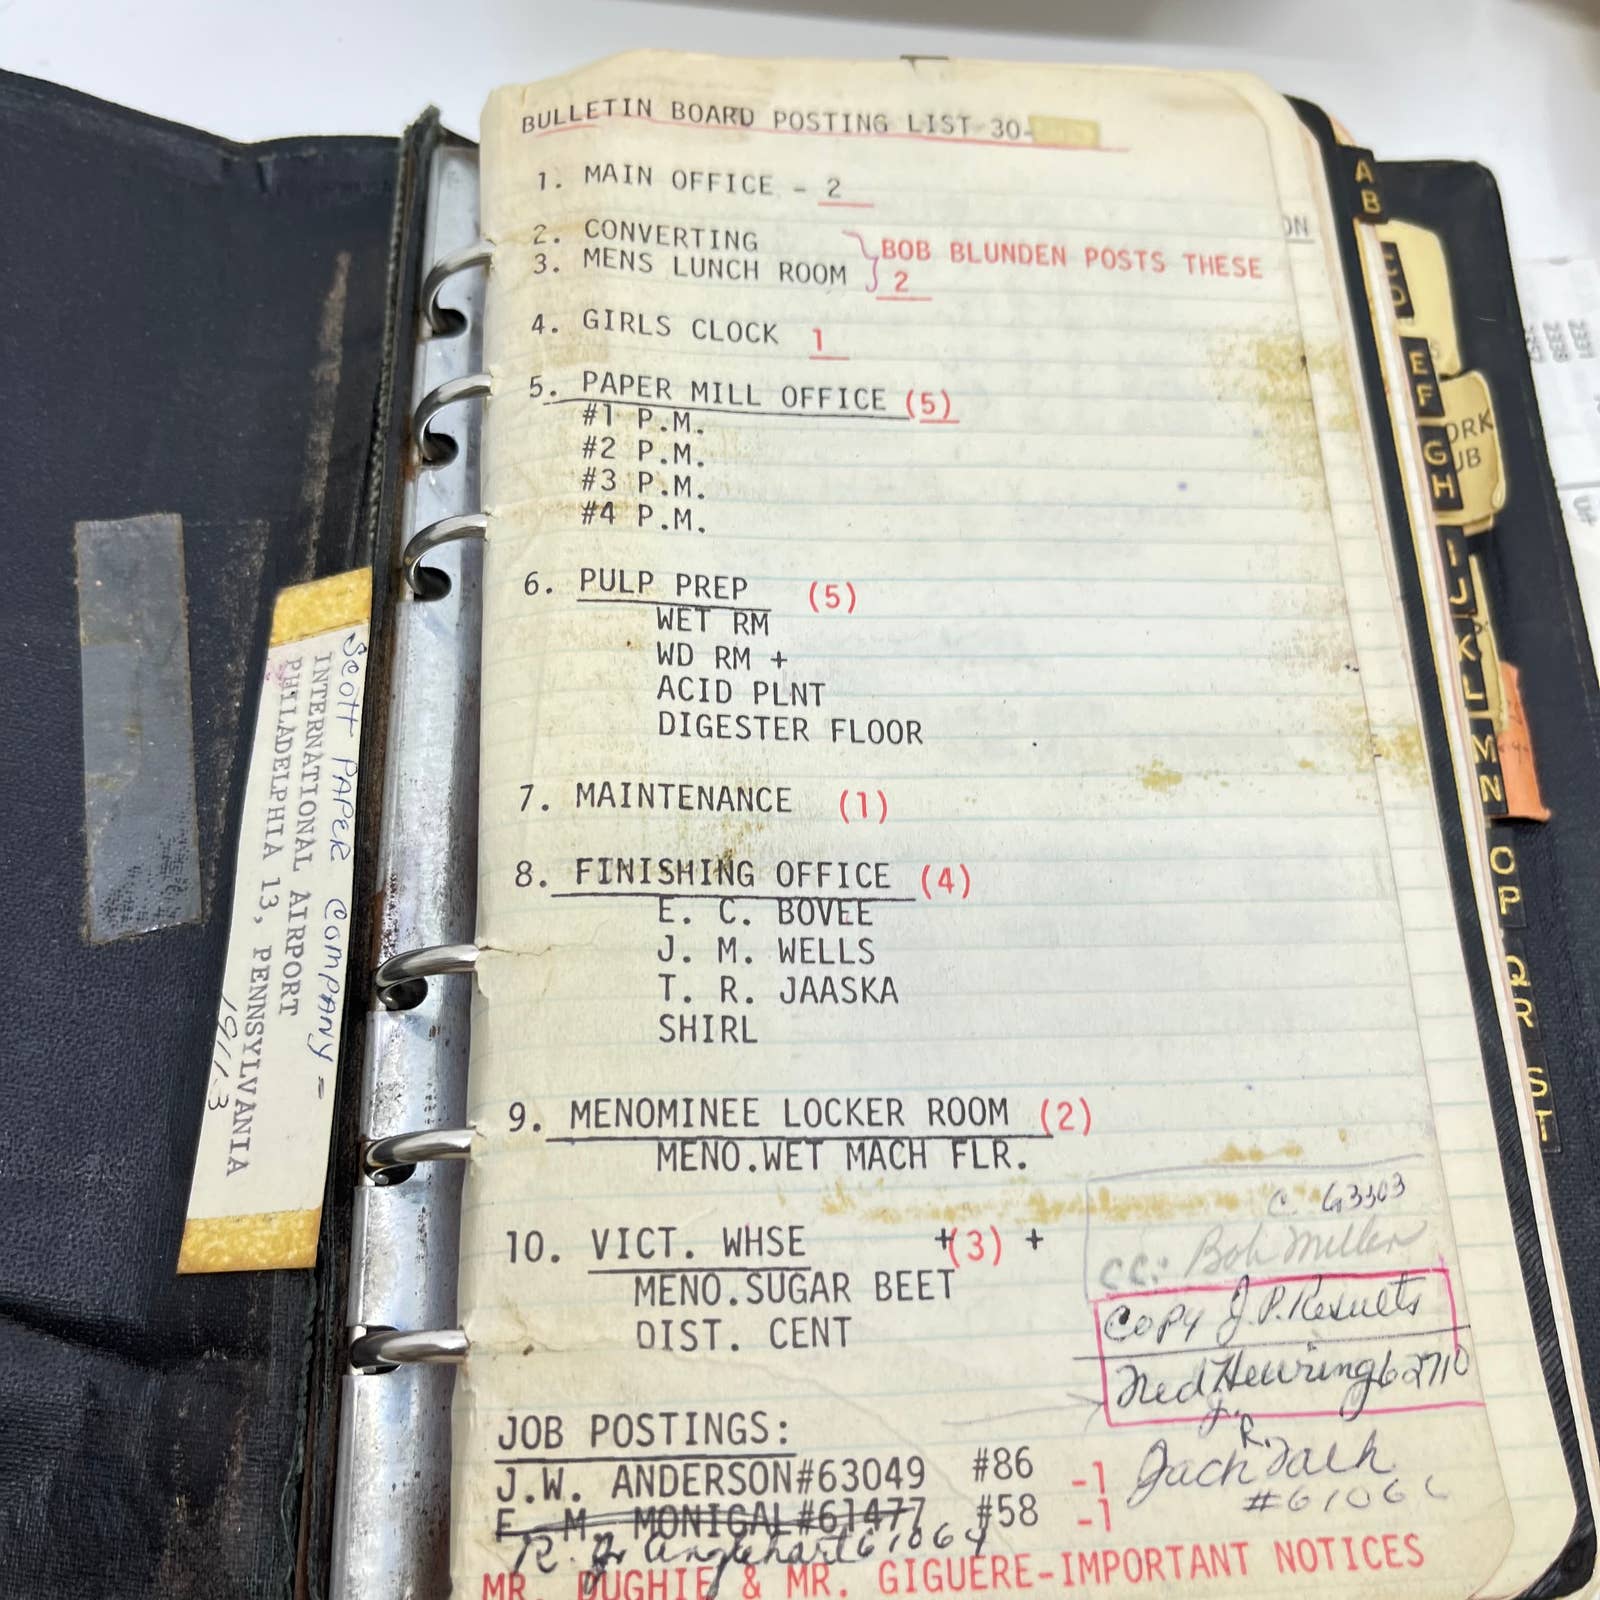 BULLETIN BOARD POSTING LIST-30-
1. MAIN OFFICE - 2
2. CONVERTING
3. MENS LUNCH ROOM
BOB BLUNDEN POSTS THESE
2
4. GIRLS CLOCK 1
5. PAPER MILL OFFICE (5)
#1 P.M.
#2 P.M.
#3 P.M.
#4 P.M.
6. PULP PREP (5)
WET RM
WD RM +
ACID PLNT
DIGESTER FLOOR
7. MAINTENANCE (1)
8. FINISHING OFFICE (4)
E. C. BOVEE
J. M. WELLS
T. R. JAASKA
SHIRL
9. MENOMINEE LOCKER ROOM (2)
MENO.WET MACH FLR.
10. VICT. WHSE +(3) +
MENO.SUGAR BEET
DIST. CENT
C. G3303
CC: Bob Miller
Copy J.P. Results
Ned 62710
JOB POSTINGS:
J.W. ANDERSON#63049 #86 -1
E. M. MONIGAL#61477 #58 -1
R. J. 61064
Jack
MR. DUGHIE & MR. GIGUERE-IMPORTANT NOTICES
SCOTT PAPER COMPANY =
INTERNATIONAL AIRPORT
PHILADELPHIA 13, PENNSYLVANIA
19113
A
B
E
F
G
H
I
J
K
L
M
N
O
P
Q
R
S